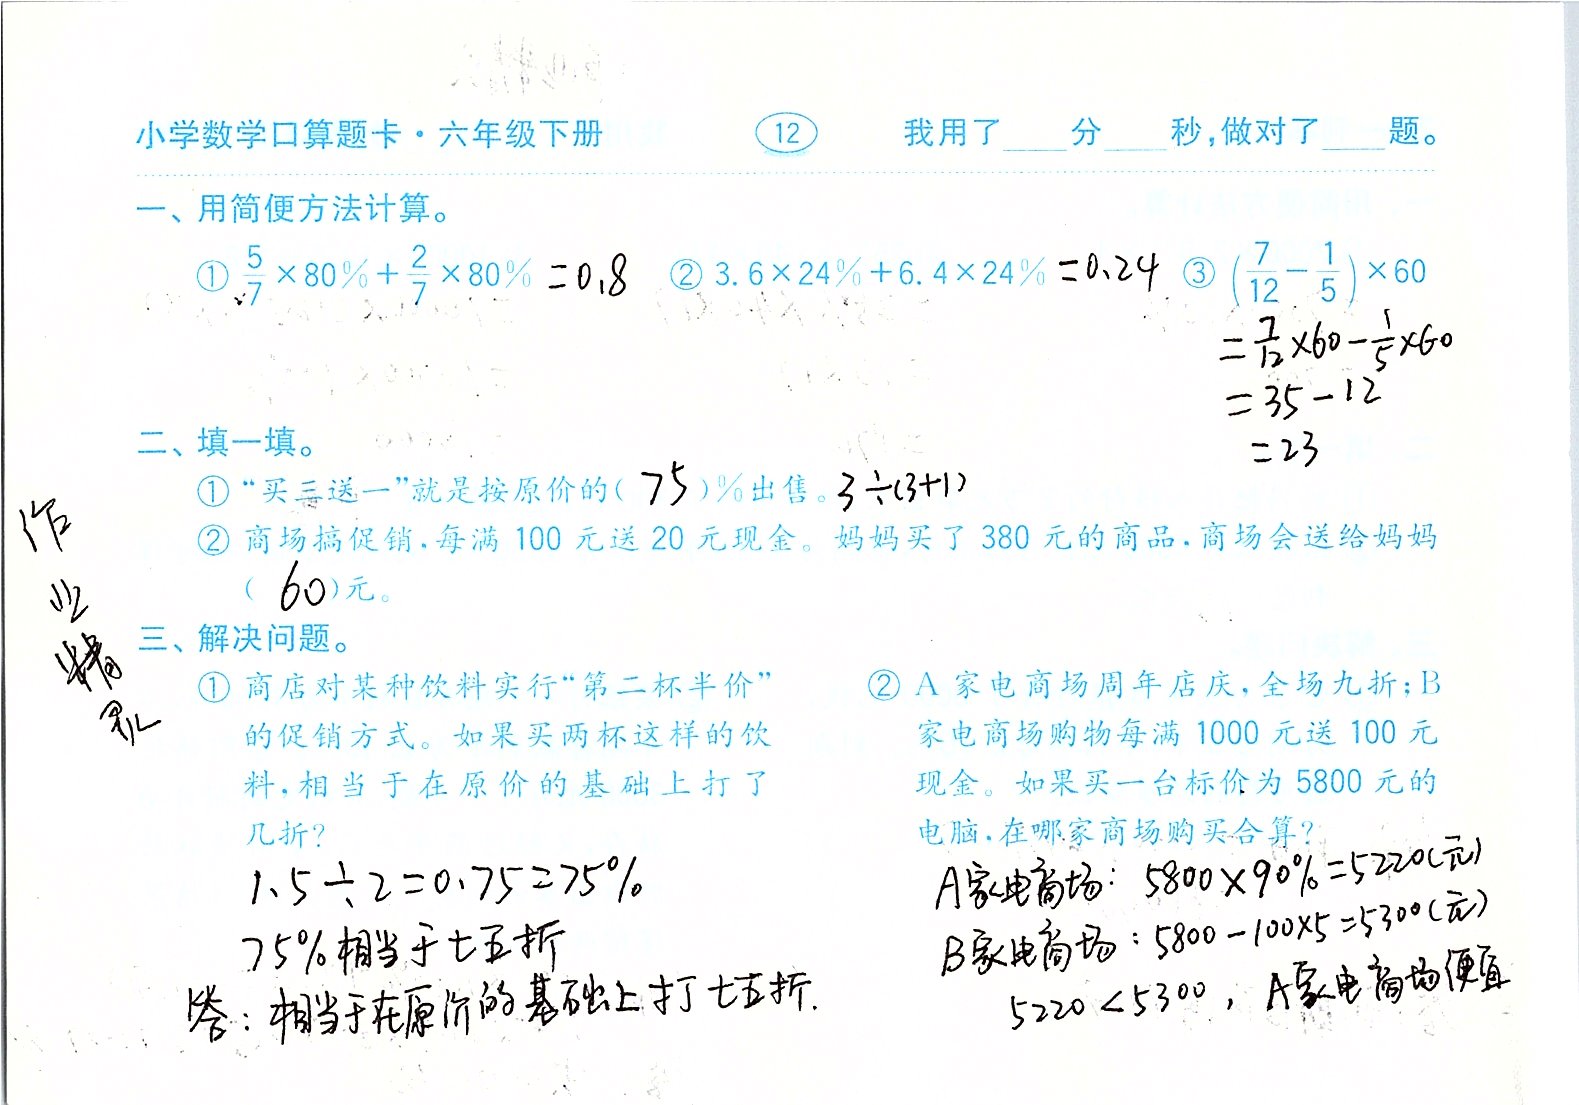 小学数学口算题卡·六年级下册 12 我用了____分____秒,做对了____题。
一、用简便方法计算。
① 5/7×80%+2/7×80% =0.8 ② 3.6×24%+6.4×24% =0.24 ③ (7/12-1/5)×60
=7/12×60-1/5×60
=35-12
=23
二、填一填。
① “买三送一”就是按原价的( 75 )%出售。3÷(3+1)
② 商场搞促销,每满 100 元送 20 元现金。妈妈买了 380 元的商品,商场会送给妈妈
( 60 )元。
三、解决问题。
① 商店对某种饮料实行“第二杯半价”
的促销方式。如果买两杯这样的饮
料,相当于在原价的基础上打了
几折?
1.5÷2=0.75=75%
75%相当于七五折
答:相当于在原价的基础上打七五折.
② A 家电商场周年店庆,全场九折;B
家电商场购物每满 1000 元送 100 元
现金。如果买一台标价为 5800 元的
电脑,在哪家商场购买合算?
A家电商场: 5800×90%=5220(元)
B家电商场:5800-100×5=5300(元)
5220<5300,A家电商场便宜
作
业
精
灵